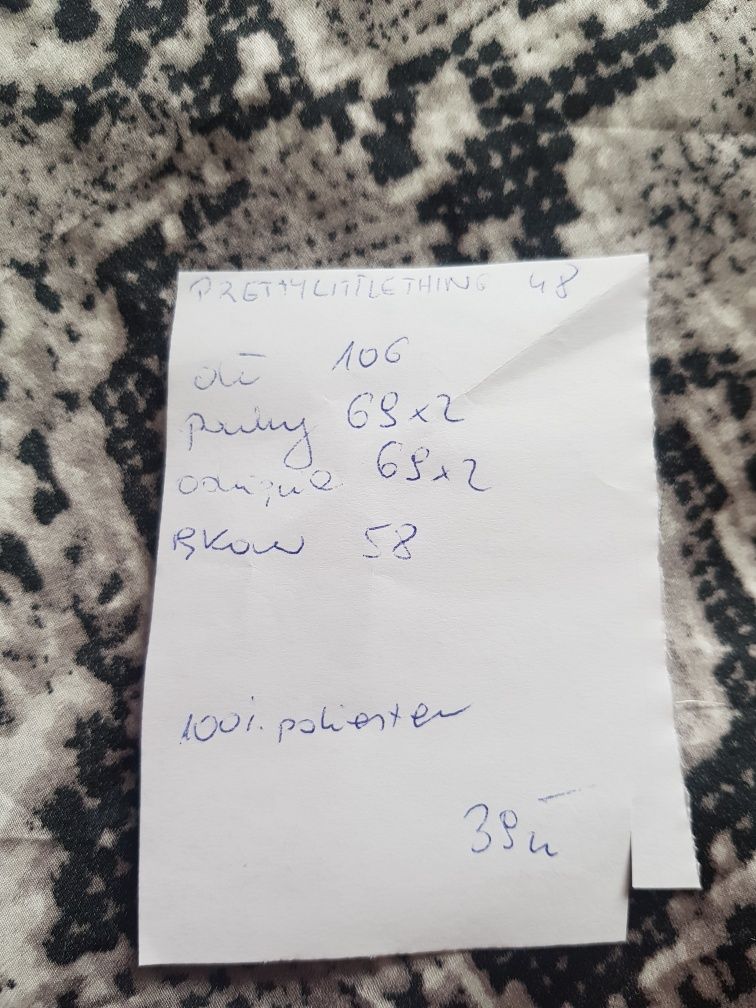 PRETTYLITTLETHING 48
dł 106
pachy 69x2
69x2
Rękaw 58
100% poliester
39zł